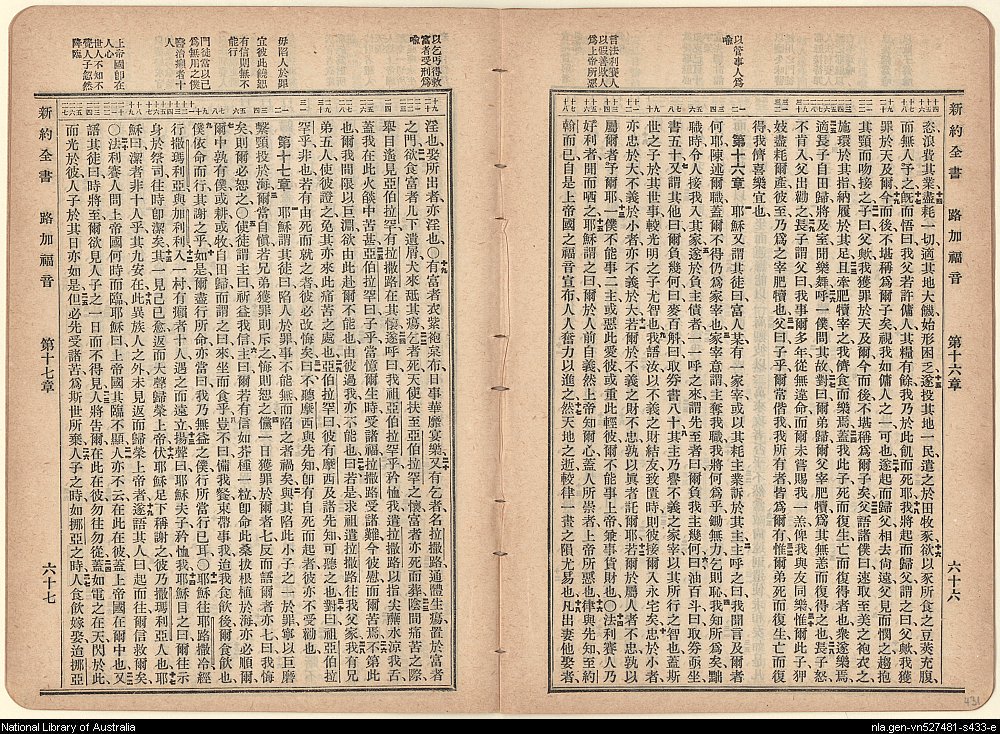 新約全書 路加福音 第十六章 六十六
以管事人爲喩
言法利賽人以假善欺人爲上帝所惡
恣浪費其業盡耗一切適其地大饑始形困乏遂投其地一民遣之於田牧豕欲以豕所食之豆莢充腹
而無人予之旣而悟曰我父若許傭人其糧有餘我乃於此飢而死耶我將起而歸父謂之曰父歟我獲
罪於天及爾今而後不堪稱爲爾子矣視我如傭人之一可也遂起而歸父相去尙遠父見而憫之趨抱
其頸而吻接之子曰父歟我獲罪於天及爾今而後不堪稱爲爾子矣父語諸僕曰速取至美之袍衣之
施環於其指納履於其足且牽肥犢宰之我儕食而樂焉蓋我此子死而復生亡而復得者也衆遂樂焉
適長子自田歸將及室聞樂舞呼一僕問其故對曰爾弟歸爾父宰肥犢爲其無恙而復得之也長子怒
不肯入父出勸之長子謂父曰我事爾多年從無違命而爾未嘗賜我一羔俾我與友同樂惟爾此子狎
妓盡耗爾產彼至乃爲之宰肥犢也父曰子乎爾常偕我我所有者皆爲爾有惟爾弟死而復生亡而復
得我儕喜樂宜也
第十六章 耶穌又謂其徒曰富人某有一家宰或以其耗主業訴於其主主呼之曰我聞言及爾者
何耶陳述爾職蓋爾不得仍爲家宰也家宰意謂主奪我職我將何爲乎鋤無力乞則恥我知所爲矣黜
職時令人接我入其家遂於負主債者一一呼之來謂先至者曰爾負我主幾何曰油百斗曰取劵亟坐
書五十又謂其他曰爾負幾何曰麥百斛曰取劵書八十其主乃譽不義之家宰以其所行之智也蓋斯
世之子於其世事較光明之子尤智也我語汝以不義之財結友致匱時則彼接爾入永宅矣忠於小者
亦忠於大不義於小者亦不義於大若爾於不義之財不忠孰以眞者託爾耶若爾於屬人者不忠孰以
屬爾者予爾耶一僕不能事二主或惡此愛彼或重此輕彼爾不能事上帝兼事貨財也〇法利賽人乃
好利者聞而哂之耶穌謂之曰爾於人前自義然上帝知爾心蓋人所崇者上帝所惡也律與先知至約
翰而已自是上帝國之福音宣布人人奮力以進之然天地之逝較律一畫之隕尤易也凡出妻他娶者
新約全書 路加福音 第十七章 六十七
以乞丐得救富者受刑爲喩
毋陷人於罪
宜彼此饒恕
有信則無不能行
門徒當以己爲無用之僕
醫治癩者十人
上帝國卽在人心
世人不知不覺人子忽然降臨
淫也娶所出者亦淫也〇有富者衣紫袍枲布日事華靡宴樂又有乞者名拉撒路通體生瘍置於富者
之門欲食富者几下遺屑犬來舐其瘍乞者死天使扶至亞伯拉罕之懷富者亦死而葬陰間痛苦之際
舉目遙見亞伯拉罕有拉撒路在其懷遂呼曰我祖亞伯拉罕乎矜恤我遣拉撒路以指尖蘸水涼我舌
蓋我在此火燄中苦甚亞伯拉罕曰子乎當憶爾生時受諸福拉撒路受諸難今彼慰而爾苦焉不第此
也爾我間限以巨淵欲由此赴爾不能也由彼過我亦不能也曰若是求祖遣拉撒路往我父家我有兄
弟五人使彼證之免其亦來此痛苦之處也亞伯拉罕曰彼有摩西及諸先知可聽之也對曰祖亞伯拉
罕乎非也若有由死而就之者彼必改悔矣曰不聽摩西與先知卽有自死而起者彼亦不受勸也
第十七章 耶穌謂其徒曰陷人於罪事不能無而陷之者禍矣與其陷此小子之一於罪寧以巨磨
繫頸投於海爾當自愼若兄弟獲罪則斥之悔則恕之儻一日獲罪於爾者七反而語爾者亦七曰我悔
矣則爾必恕之〇使徒謂主曰祈益我信主曰爾若有信如芥種一粒卽命此桑拔根植於海亦必順爾
爾中孰有僕或耕或牧自田歸而謂之曰來坐而食乎豈不曰備我餐束帶事我迨我食飮後爾食飮
僕依命而行其謝之乎如是爾盡行所命亦當曰我乃無益之僕行所當行已耳〇耶穌往耶路撒冷經
行撒瑪利亞與加利利入一村有癩者十人遇之而遠立揚聲曰耶穌夫子矜恤我耶穌目之曰爾往示
身於祭司往時卽潔矣其一見己已愈返而大聲歸榮上帝伏耶穌足下稱謝之彼乃撒瑪利亞人也耶
穌曰潔者非十人乎其九安在此異族人之外未見返而歸榮上帝者遂語其人曰起而往爾信救爾矣
〇法利賽人問上帝國何時而臨耶穌曰上帝國其臨不顯人亦不云在此在彼蓋上帝國在爾中也又
語其徒曰時將至爾欲見人子之一日而不得見人將告爾在此在彼勿往勿從蓋如電之在天閃於此
而光於彼人子於其日亦如是但必先受諸苦爲斯世所棄人子之時如挪亞之時人食飮嫁娶迨挪亞
National Library of Australia
nla.gen-vn527481-s433-e
431